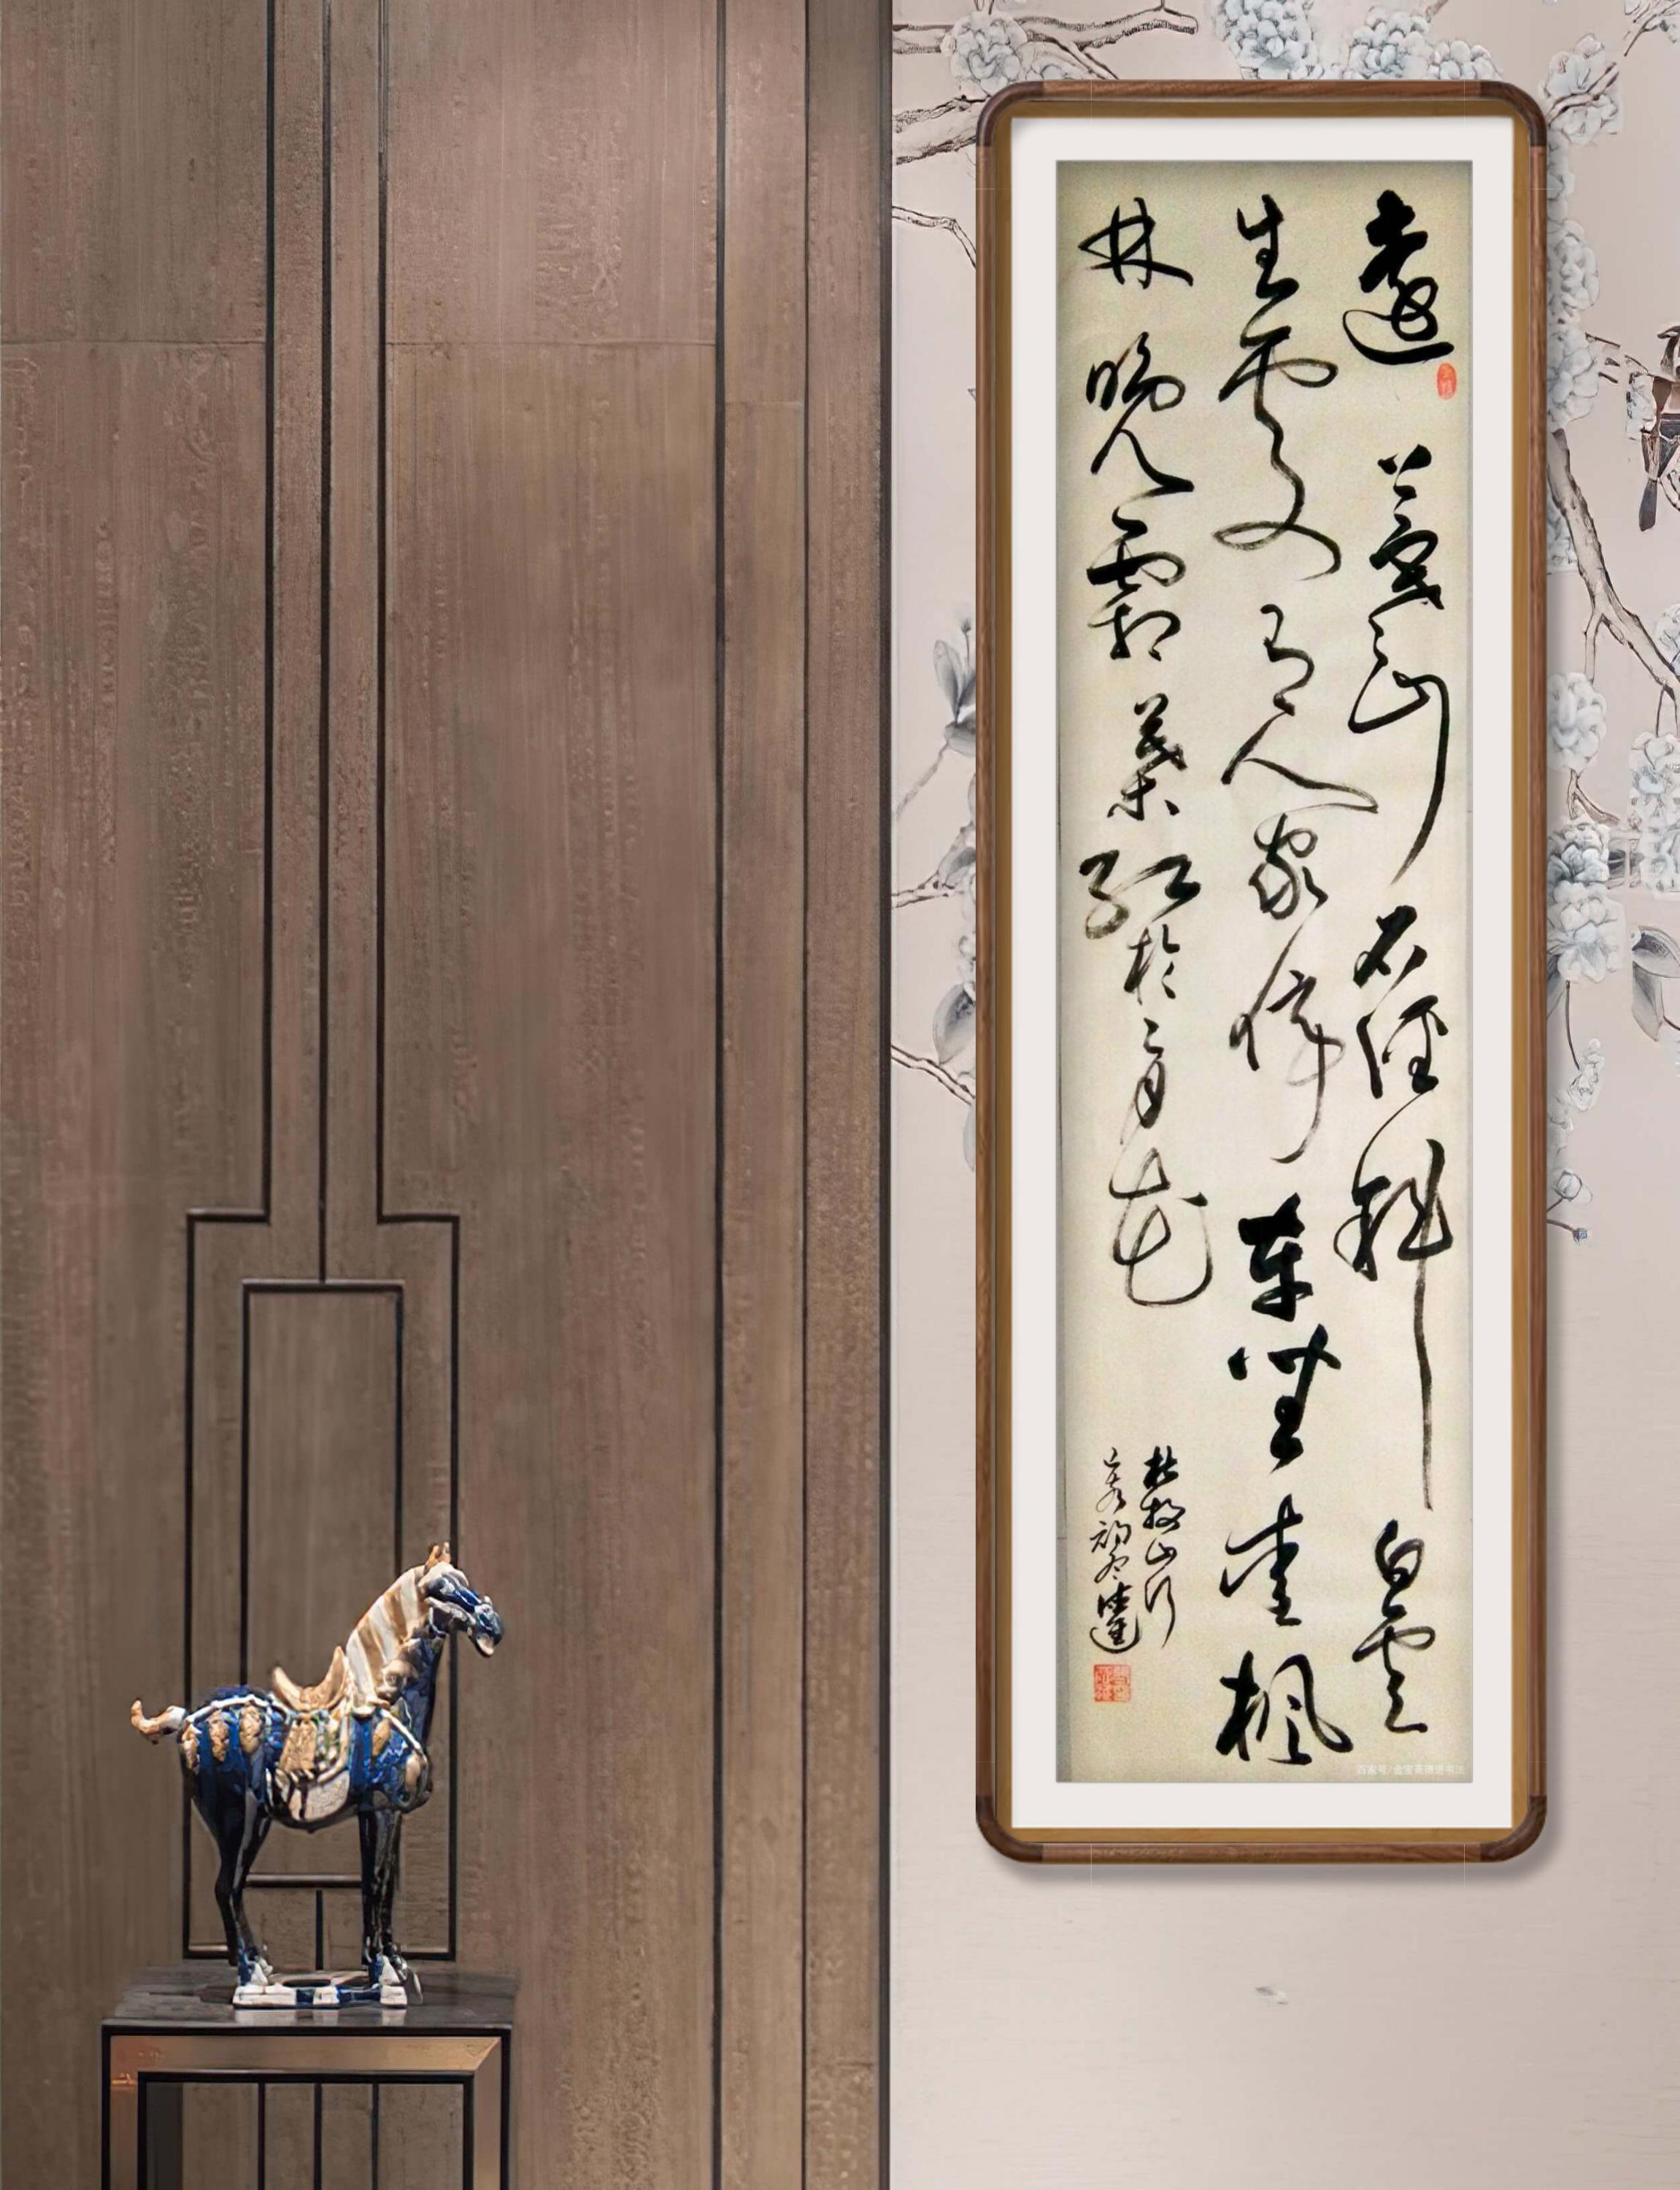 遠上寒山石徑斜白雲
生處有人家停車坐愛楓
林晚霜葉紅於二月花
杜牧山行
百家号/
书法